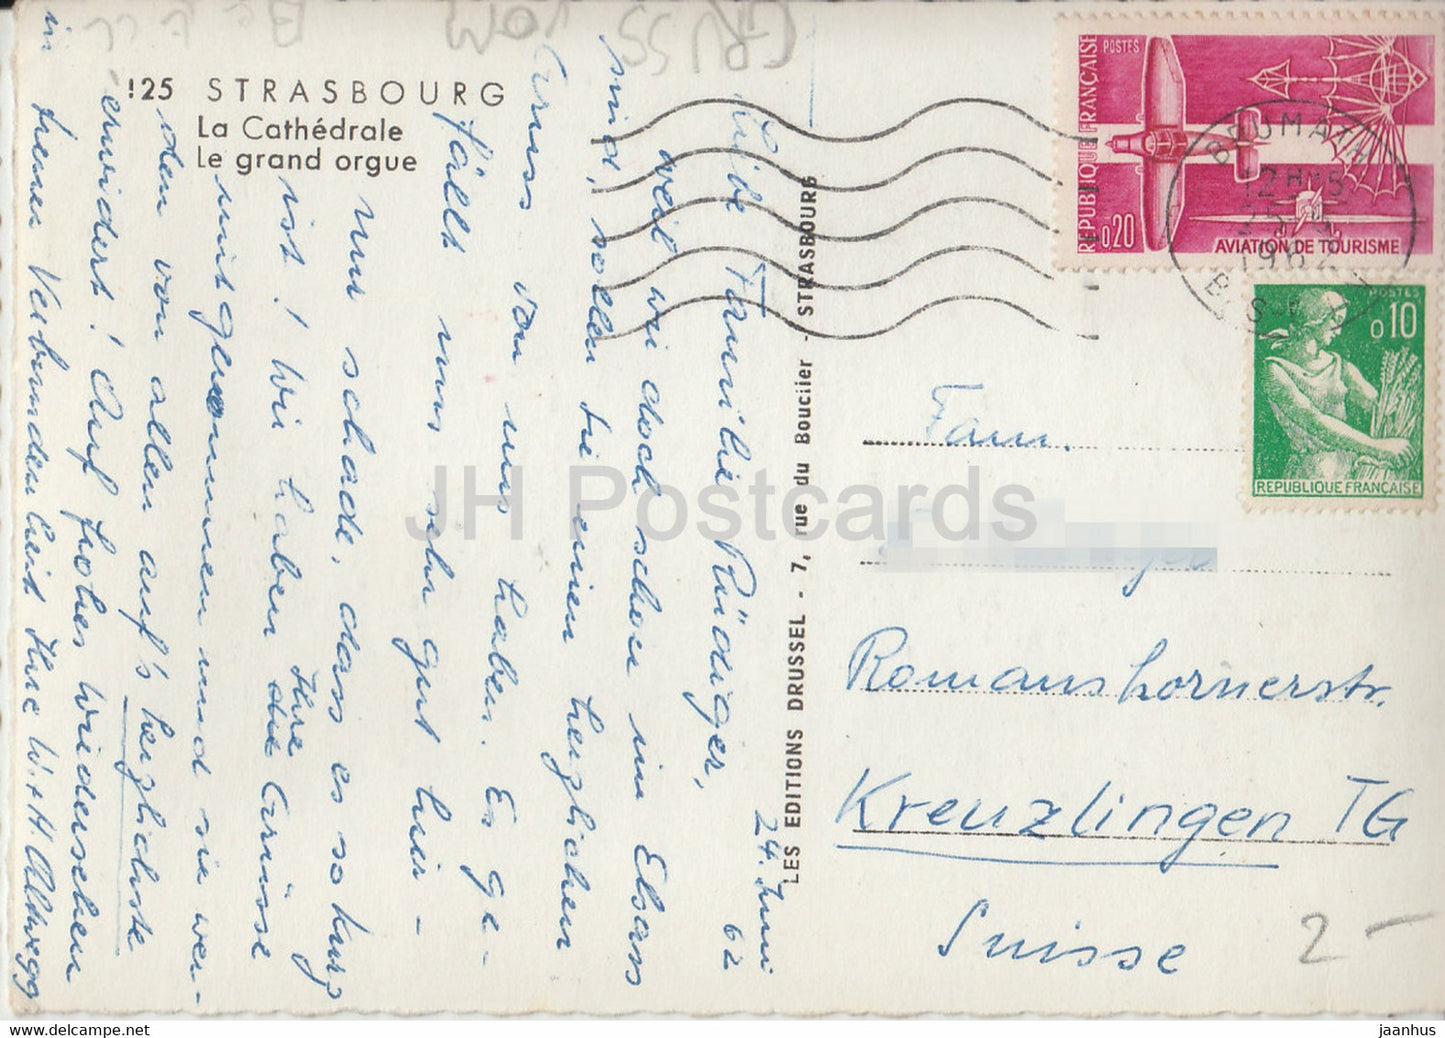 125 STRASBOURG
La Cathédrale
Le grand orgue
24. Juni 62
Liebe Familie Rüdiger,
weil wir doch schon im Elsass
sind, sollen Sie einen herzlichen
Gruss von uns haben. Es ge-
fällt uns sehr gut hier -
nur schade, dass es so kurz
ist! Wir haben Ihre Grüsse
mitgenommen und sie wer-
den von allen auf's herzlichste
erwidert! Auf frohes Wiedersehen
in treuer Verbundenheit Ihre W. + H. Altwegg
LES EDITIONS DRUSSEL - 7, rue du Bouclier - STRASBOURG
RÉPUBLIQUE FRANÇAISE
POSTES
0,20
AVIATION DE TOURISME
BRUMATH
12H15
25
1962
POSTES
0,10
REPUBLIQUE FRANÇAISE
Fam.
Romanshornerstr.
Kreuzlingen TG
Suisse
2 -
JH Postcards
www.delcampe.net
jaanhus